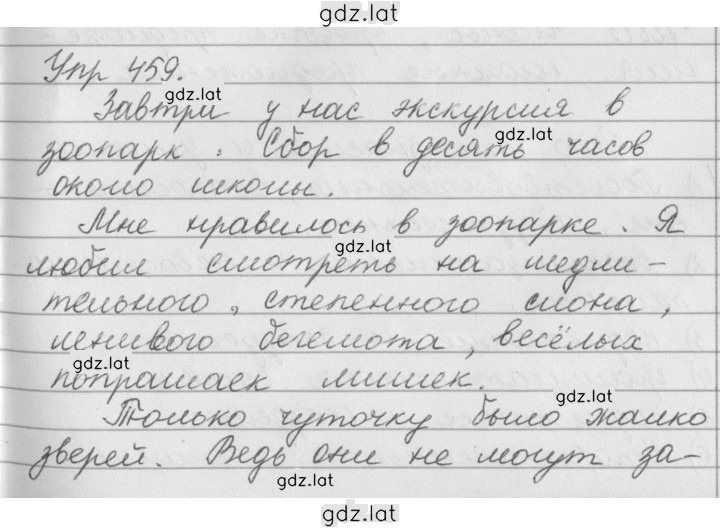 gdz.lat
Упр 459.
gdz.lat
Завтра у нас экскурсия в
gdz.lat
зоопарк. Сбор в десять часов
около школы.
Мне нравилось в зоопарке. Я
gdz.lat
любил смотреть на медли-
тельного, степенного слона,
ленивого бегемота, весёлых
gdz.lat
попрашаек мишек.
gdz.lat
Только чуточку было жалко
зверей. Ведь они не могут за-
gdz.lat
gdz.lat